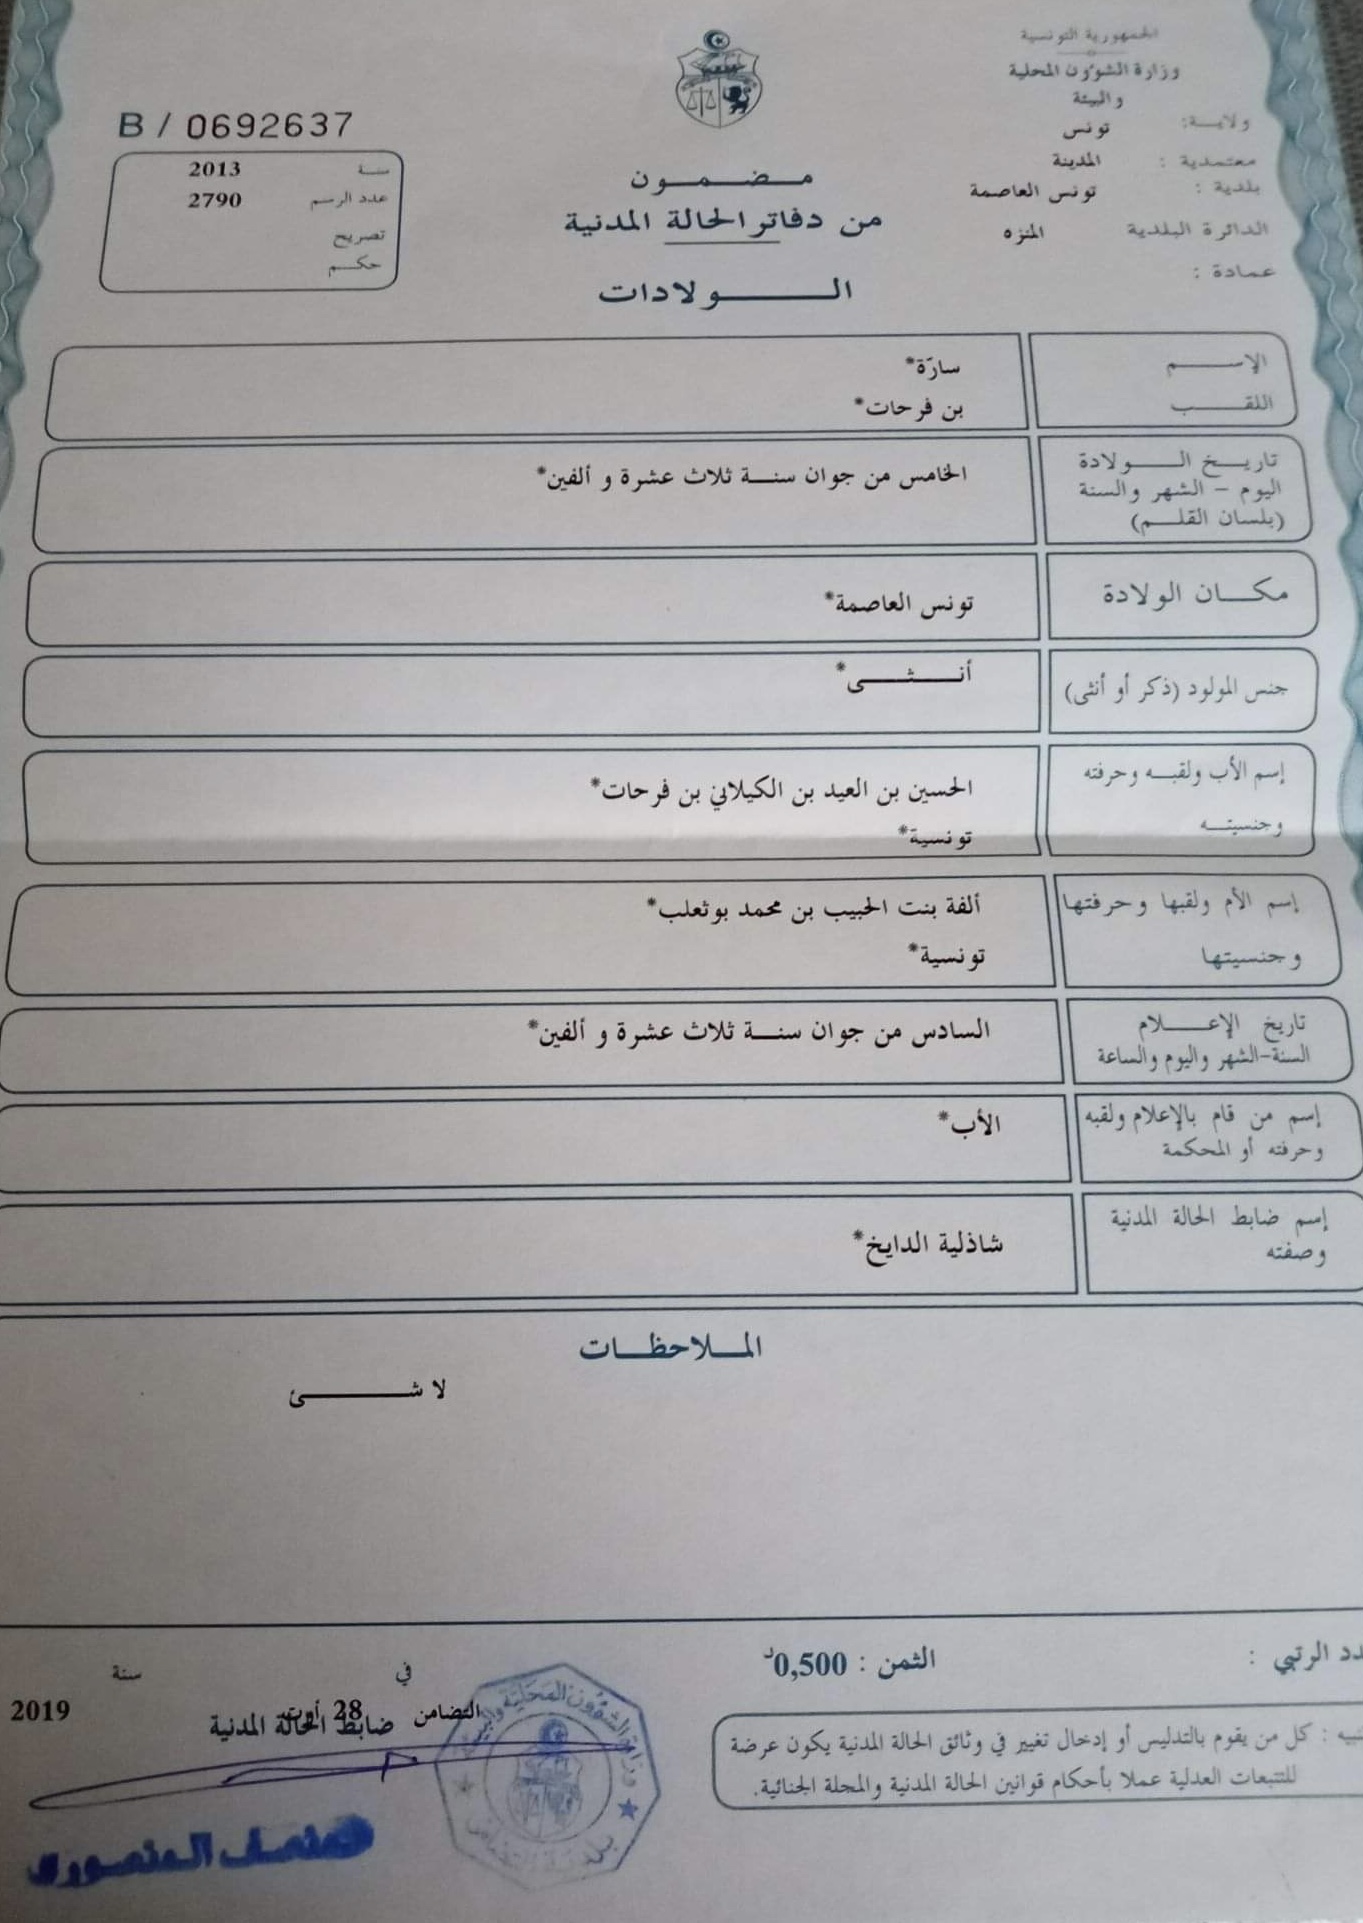 الجمهورية التونسية
وزارة الشؤون المحلية
والبيئة
ولاية: تونس
معتمدية : المدينة
بلدية : تونس العاصمة
الدائرة البلدية المنزه
عمادة :
B / 0692637
سنة 2013
عدد الرسم 2790
تصريح
حكم
مضمون
من دفاتر الحالة المدنية
الولادات
الإسم سارّة*
اللقب بن فرحات*
تاريخ الولادة
اليوم - الشهر والسنة
(بلسان القلم)
الخامس من جوان سنة ثلاث عشرة و ألفين*
مكان الولادة تونس العاصمة*
جنس المولود (ذكر أو أنثى) أنثى*
إسم الأب ولقبه وحرفته
وجنسيته
الحسين بن العيد بن الكيلاني بن فرحات*
تونسية*
إسم الأم ولقبها وحرفتها
وجنسيتها
ألفة بنت الحبيب بن محمد بوثعلب*
تونسية*
تاريخ الإعلام
السنة-الشهر واليوم والساعة
السادس من جوان سنة ثلاث عشرة و ألفين*
إسم من قام بالإعلام ولقبه
وحرفته أو المحكمة
الأب*
إسم ضابط الحالة المدنية
وصفته
شاذلية الدايخ*
الملاحظات
لا شئ
الرتبي :
الثمن : 0,500د
كل من يقوم بالتدليس أو إدخال تغيير في وثائق الحالة المدنية يكون عرضة
للتتبعات العدلية عملا بأحكام قوانين الحالة المدنية والمجلة الجنائية.
في سنة
التضامن 28 أوت 2019
ضابط الحالة المدنية
وزارة الشؤون المحلية والبيئة
بلدية التضامن
منصف المنصوري